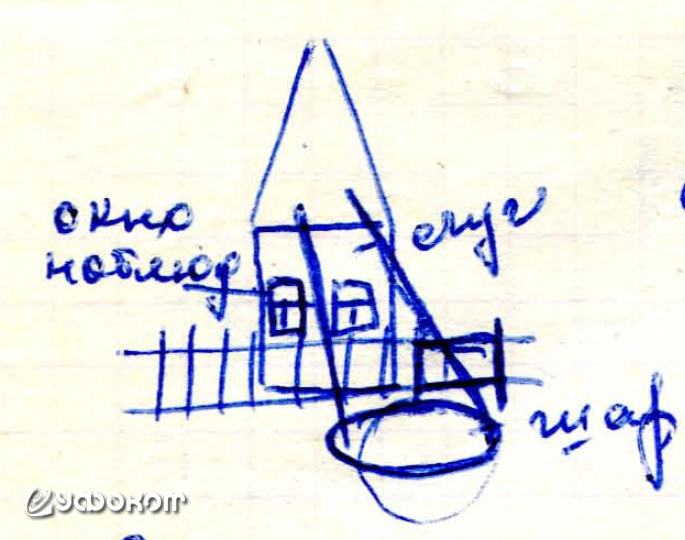 окно
наблюд
шар
Уфоком